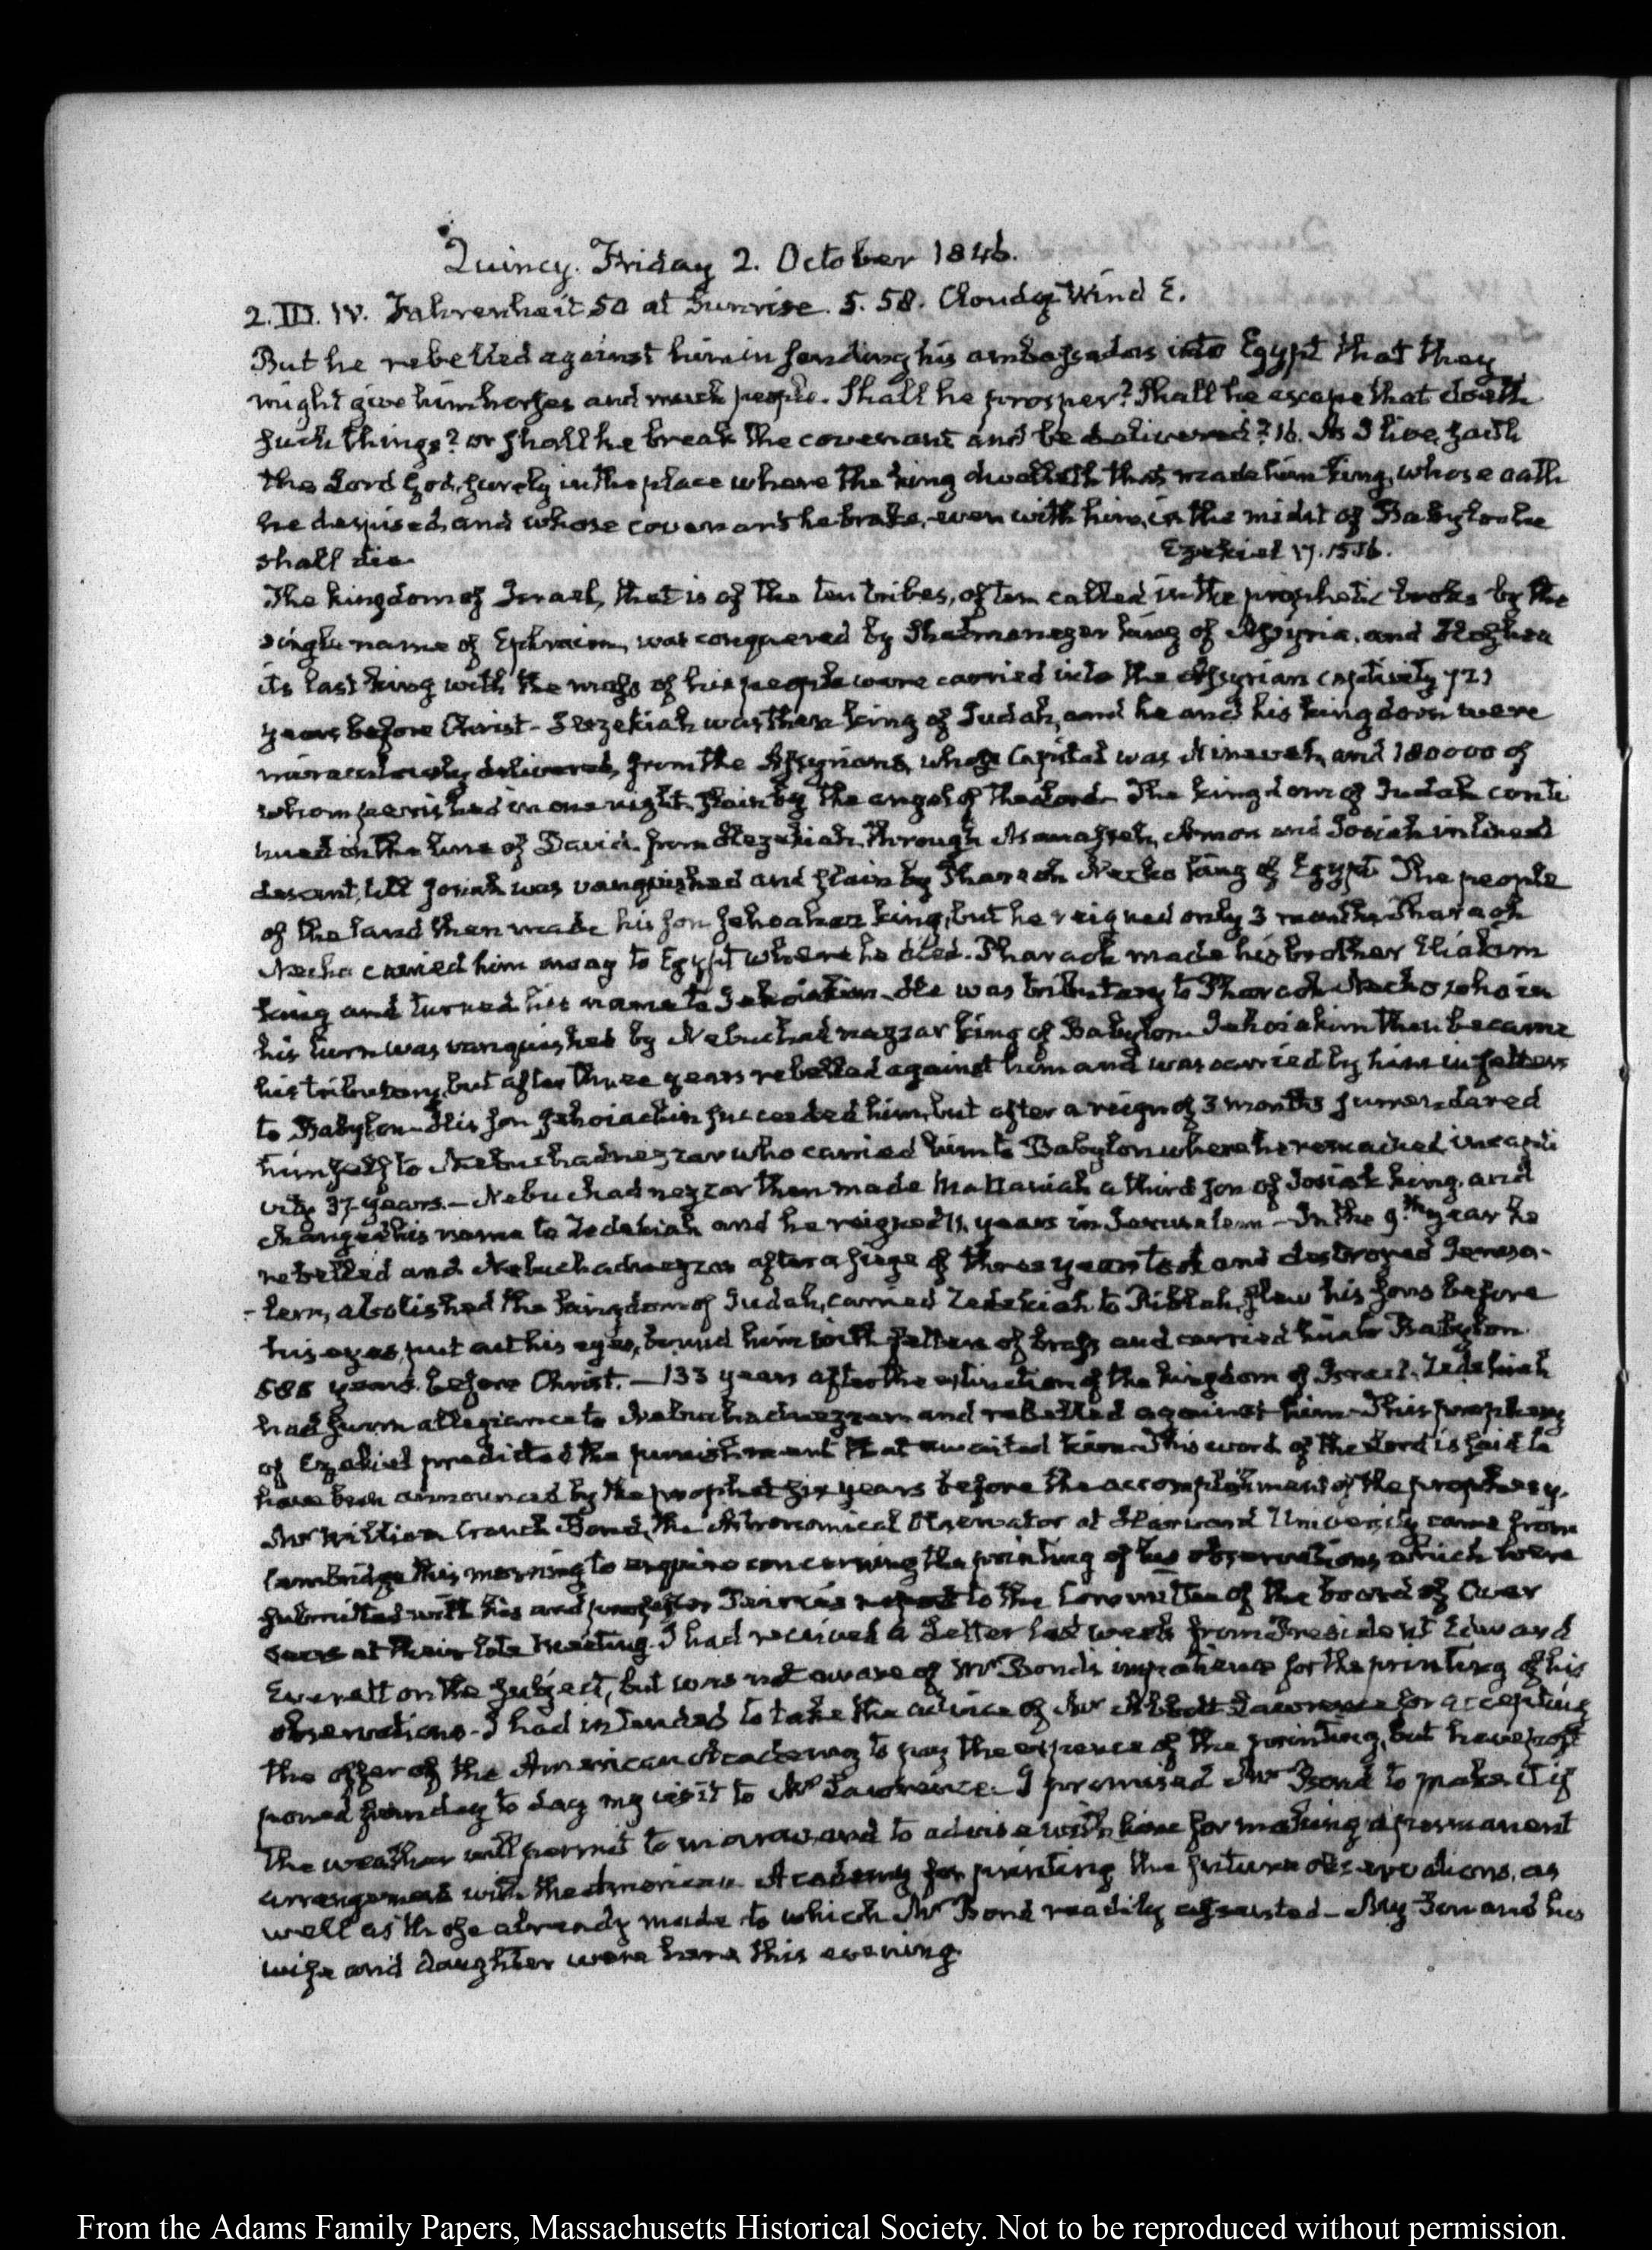 Quincy. Friday 2. October 1846.
2. III. IV. Fahrenheit 50 at Sunrise. 5. 58. Cloudy Wind E.
But he rebelled against him in sending his ambassadors into Egypt that they
might give him horses and much people. Shall he prosper? Shall he escape that doeth
such things? or shall he break the covenant and be delivered? 16. As I live, saith
the Lord God, surely in the place where the king dwelleth that made him king, whose oath
he despised, and whose covenant he brake, even with him, in the midst of Babylon he
shall die. Ezekiel 17. 15.16.
The kingdom of Israel, that is of the ten tribes, often called in the prophetic books by the
single name of Ephraim, was conquered by Shalmanezer king of Assyria, and Hoshea
its last king with the mass of his people were carried into the Assyrian captivity 721
years before Christ - Hezekiah was then king of Judah, and he and his kingdom were
miraculously delivered, from the Assyrians, whose Capital was Nineveh, and 180000 of
whom perished in one night. slain by the angel of the Lord. The kingdom of Judah conti
nued in the line of David from Hezekiah, through Manasseh, Amon and Josiah in lineal
descent, till Josiah was vanquished and slain by Pharaoh Necho king of Egypt. The people
of the land then made his son Jehoahaz king, but he reigned only 3 months. Pharaoh
Necho carried him away to Egypt where he died. Pharaoh made his brother Eliakim
king and turned his name to Jehoiakim. He was tributary to Pharaoh Necho, who in
his turn was vanquished by Nebuchadnezzar king of Babylon. Jehoiakim then became
his tributary, but after three years rebelled against him and was carried by him in fetters
to Babylon. His son Jehoiachin succeeded him, but after a reign of 3 months surrendered
himself to Nebuchadnezzar who carried him to Babylon where he remained in capti
vity 37 years. — Nebuchadnezzar then made Mattaniah a third son of Josiah king, and
changed his name to Zedekiah and he reigned 11 years in Jerusalem — In the 9th. year he
rebelled and Nebuchadnezzar after a siege of three years took and destroyed Jerusa-
-lem, abolished the kingdom of Judah, carried Zedekiah to Riblah, slew his sons before
his eyes, put out his eyes, bound him with fetters of brass and carried him to Babylon
588 years before Christ. — 133 years after the extinction of the kingdom of Israel. Zedekiah
had sworn allegiance to Nebuchadnezzar and rebelled against him. This prophecy
of Ezekiel predicted the punishment that awaited him. This word of the Lord is said to
have been announced by the prophet six years before the accomplishment of the prophesy.
Mr William Cranch Bond, the Astronomical Observator at Harvard University came from
Cambridge this morning to enquire concerning the printing of his observations, which were
submitted with his and professor Peirce's report to the Committee of the board of Over
seers at their late meeting. I had received a Letter last week from President Edward
Everett on the subject, but was not aware of Mr Bond's impatience for the printing of his
observations - I had intended to take the advice of Mr Abbott Lawrence for accepting
the offer of the American Academy to pay the expence of the printing, but have post
poned from day to day my visit to Mr Lawrence. I promised Mr Bond to make it if
the weather will permit to morrow, and to advise with him for making a permanent
arrangement with the American Academy for printing the future observations, as
well as those already made to which Mr Bond readily assented - My Son and his
wife and daughter were here this evening.
From the Adams Family Papers, Massachusetts Historical Society. Not to be reproduced without permission.